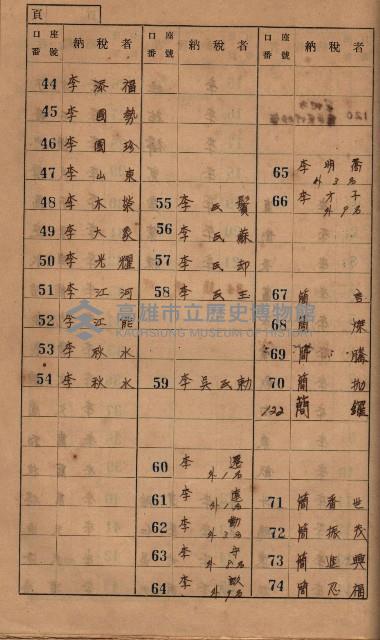 頁
口番 座號 納稅者
44 李添福
45 李國勢
46 李國珍
47 李山東
48 李木榮
49 李大象
50 李光耀
51 李江河
52 李江能
53 李秋水
54 李秋水
口番 座號 納稅者
55 李氏鬢
56 李氏蘇
57 李氏却
58 李氏玉
59 李吳氏勅
60 李
外1名
61 李
外1名
62 李
63 李守
64 李
口番 座號 納稅者
120
65 李明喬
外3名
66 李才子
外9名
67 簡吉
68 簡燦
69 簡勝
70 簡拋
122 簡耀
71 簡香世
72 簡振茂
73 簡進興
74 簡忍福
高雄市立歷史博物館
KAOHSIUNG MUSEUM OF HISTORY